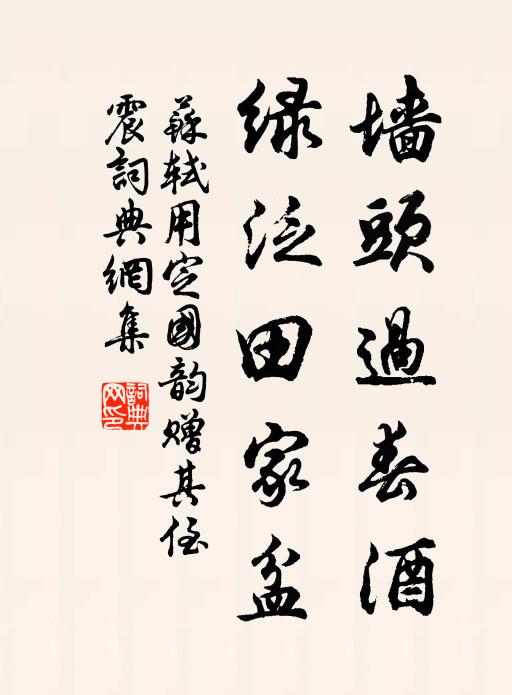 墻頭過春酒
緑泛田家盆
蘇軾用定國韵贈其侄
震詞典網集
詞典網印